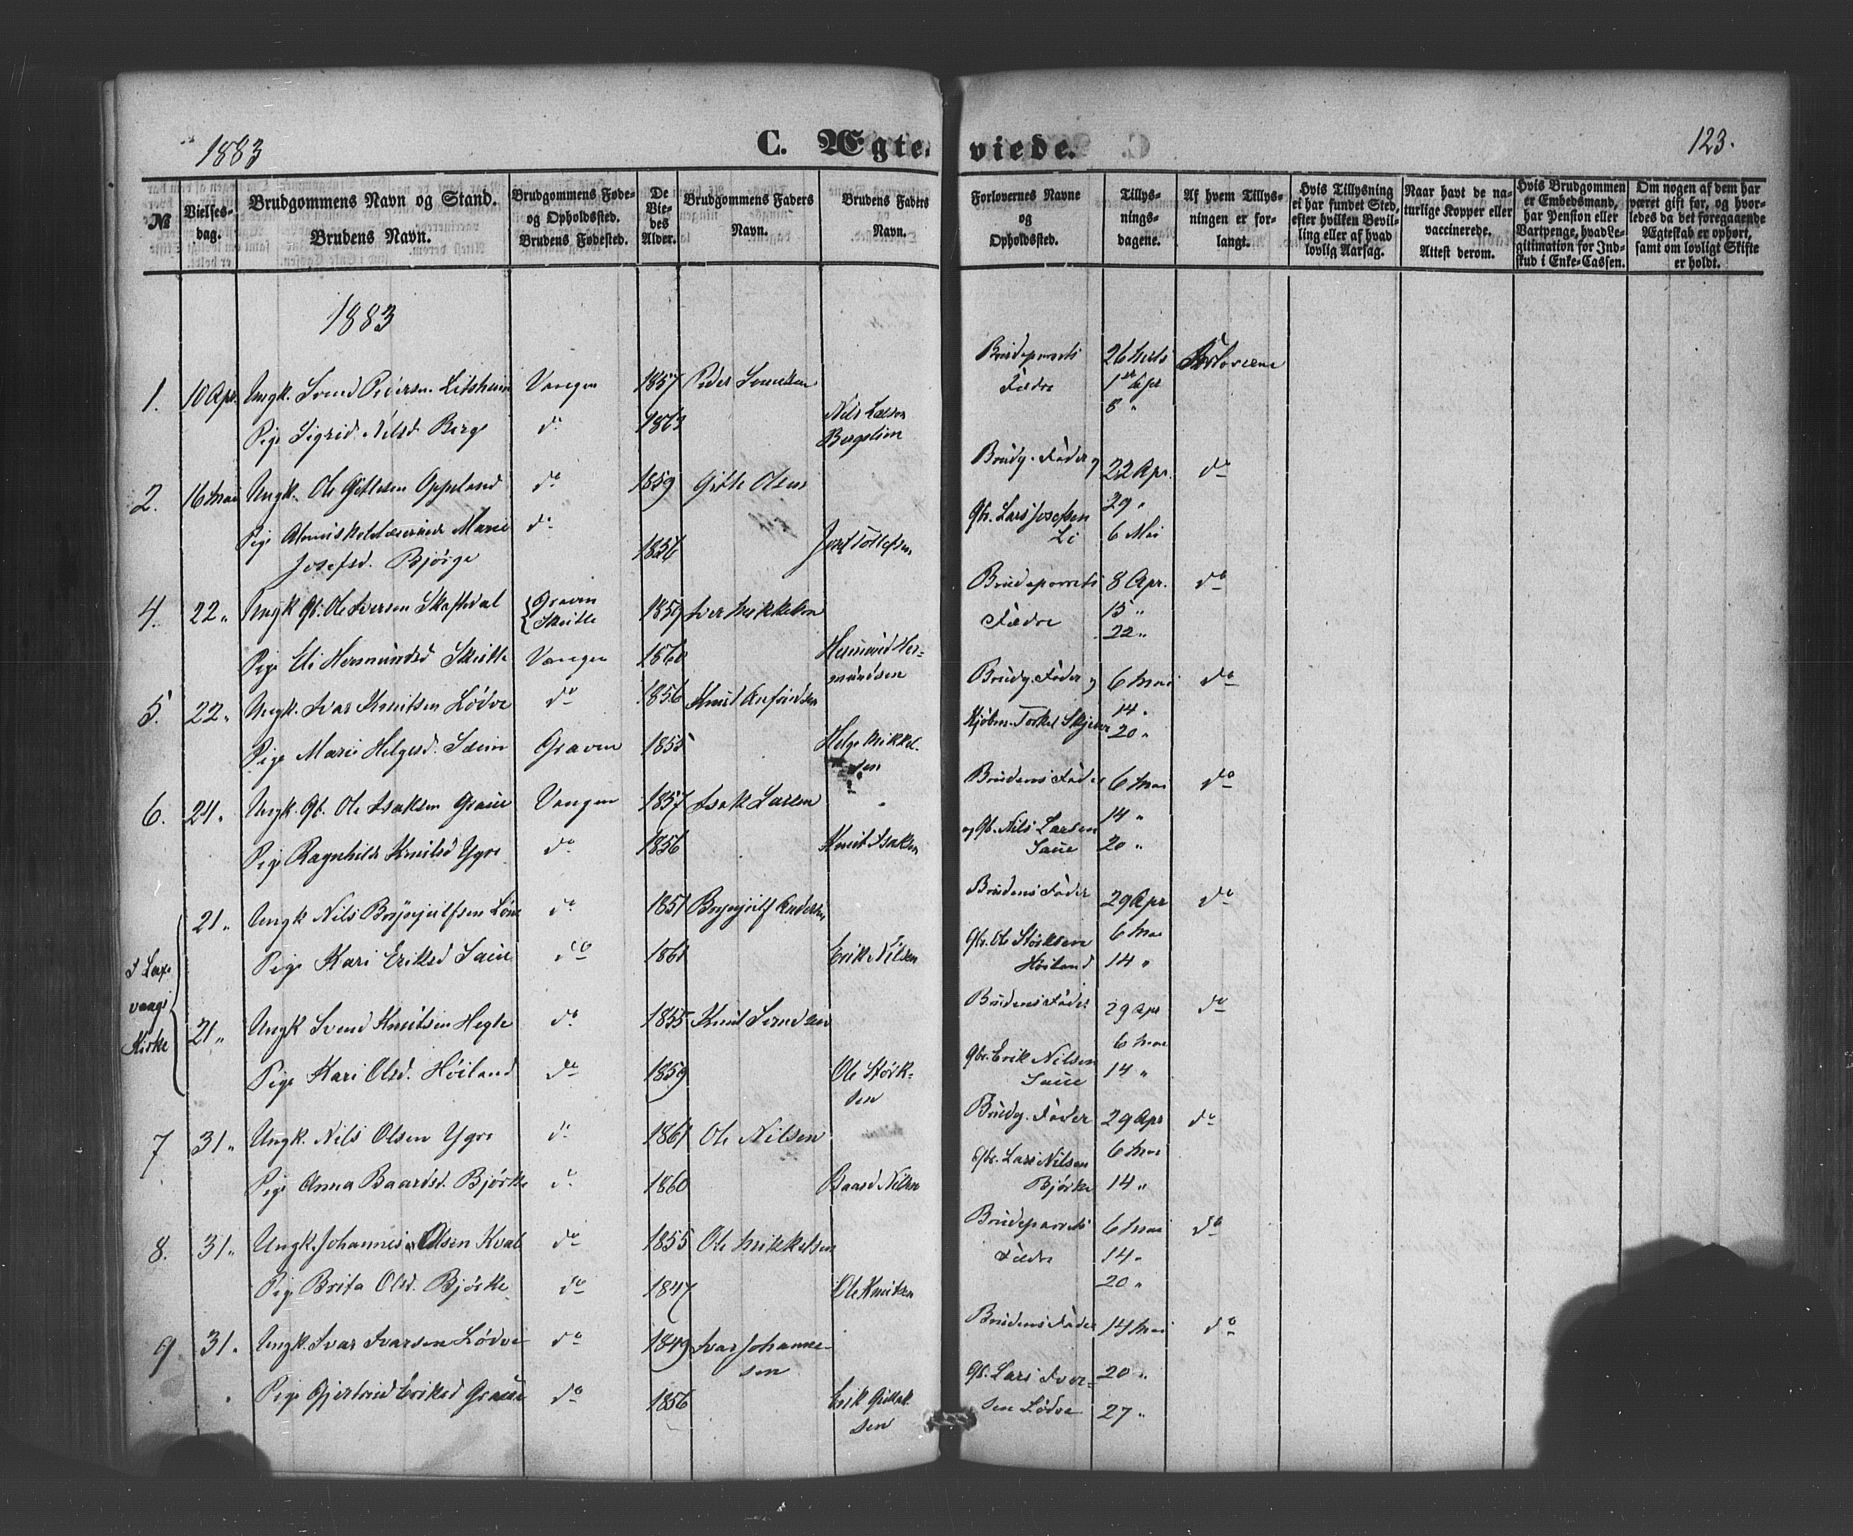 1883
C. Ægteviede.
123.
№
Vielsesdag.
Brudgommens Navn og Stand.
Brudens Navn.
Brudgommens Føde-
og Opholdssted.
Brudens Fødested.
De
Vie-
des
Alder.
Brudgommens Faders
Navn.
Brudens Faders
Navn.
Forlovernes Navne
og
Opholdssted.
Tillys-
nings-
dagene.
Af hvem Tillys-
ningen er for-
langt.
Hvis Tillysning
ei har fundet Sted,
efter hvilken Bevil-
ling eller af hvad
lovlig Aarsag.
Naar havt de na-
turlige Kopper eller
vaccinerede.
Attest derom.
Hvis Brudgommen
er Embedsmand,
har Pension eller
Vartpenge, hvad Le-
gitimation for Ind-
skud i Enke-Cassen.
Om nogen af dem har
været gift før, og hvor-
ledes da det foregaaende
Ægteskab er ophørt,
samt om lovligt Skifte
er holdt.
1883
1. 10 Apr. Ungk. Svend Pedersen Vangen 1857 Peder Brudeparrets 26 Marts Forloverne
Fædre 1ste Apr
8 "
Pige Sigrid Nilsd Berge do 1863 Nils
2. 16 Mai Ungk. Ole Gitlesen Oppeland do 1859 Gitle Olsen Brudg. Fader og 22 Apr. do
Gbr. Lars Josefsen 29 "
Li 6 Mai
Pige Marie do
Josefsd. Bjørge 1856
4. 22 " Ungk. Gb. Ole Iversen Skaftedal Graven 1859 Iver Mikkelsen Brudeparrets 8 Apr. do
Skiitle Fædre 15 "
22 "
Pige Eli Hermundsd Skiitle Vangen 1860 Hermund Her-
mundsen
5. 22 " Ungk. Ivar Knutsen Lødve do 1856 Knut Brudg. Fader og 6 Mai do
Kjøbm. Torkel 14 "
20 "
Pige Marie Helgesd. Graven 1855 Helge Mikkel-
sen
6. 24 " Ungk. Gb. Ole Isaksen Graue Vangen 1857 Isak Larsen Brudens Fader 6 Mai do
og Gb. Nils Larsen 14 "
Saue 20 "
Pige Ragnhilde Knutsd Ygre do 1856 Knut Isaksen
I
vaags
Kirke
21 " Ungk Nils Brynjulfsen Løne do 1851 Brynjulf Andersen Brudens Fader 29 Apr do
Gbr. Ole Størksen 6 Mai
Høiland 14 "
Pige Kari Eriksd Saue do 1861 Erik Nilsen
21 " Ungk Svend Knutsen Hegle do 1855 Knut Svendsen Brudens Fader 29 Apr do
Gbr. Erik Nilsen 6 Mai
Saue 14 "
Pige Kari Olsd. Høiland do 1859 Ole Størk-
sen
7 31 " Ungk. Nils Olsen Ygre do 1861 Ole Nilsen Brudg. Fader 29 Apr do
Gbr. Lars Nilsen 6 Mai
Bjørke 14 "
Pige Anna Baardsd. Bjørke do 1860 Baard Nilsen
8. 31 " Ungk. Johannes Olsen Kval do 1855 Ole Mikkelsen Brudeparrets 6 Mai do
Fædre 14 "
20 "
Pige Brita Olsd. Bjørke do 1847 Ole Knutsen
9 31 " Ungk. Ivar Ivarsen Lødve do 1849 Ivar Johanne-
sen
Brudens Fader 14 Mai do
Gb. Lars Iver- 20 "
sen Lødve 27 "
Pige Gjertrud Eriksd Graue do 1856 Erik
sen